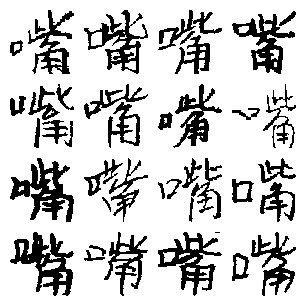 嘴嘴嘴嘴
嘴嘴嘴嘴
嘴嘴嘴嘴
嘴嘴嘴嘴